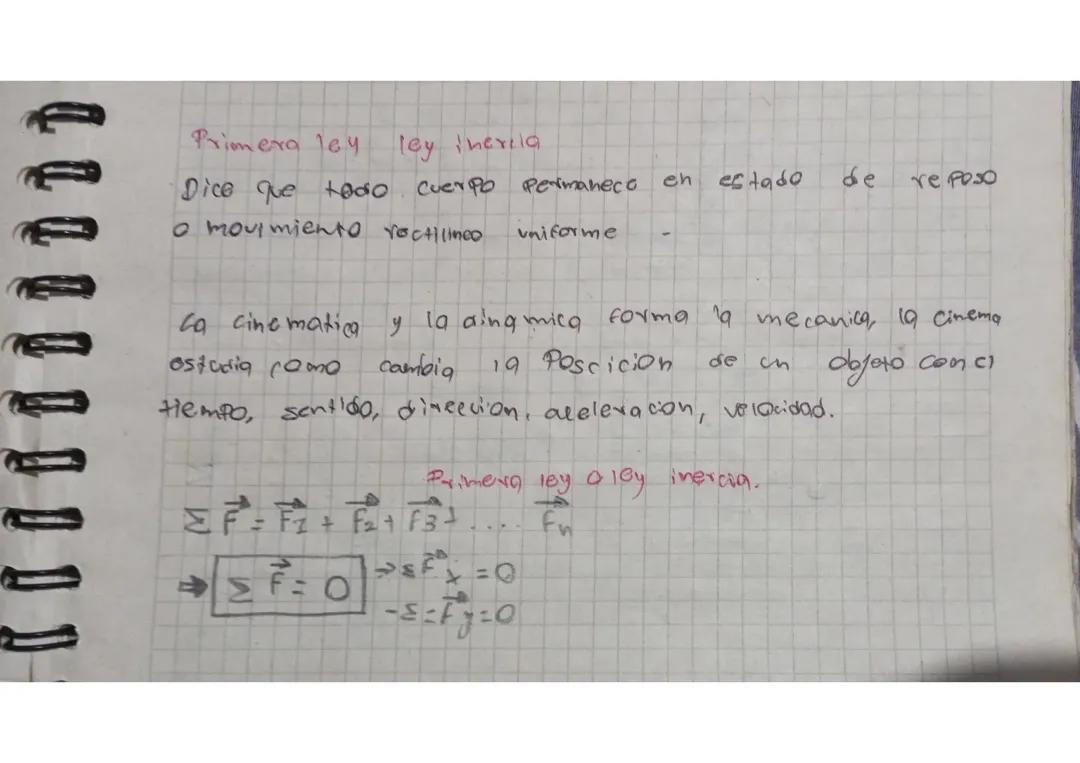 Primera ley ley inercia
Dice que todo cuerpo permanece en estado de reposo
o movimiento rectilineo uniforme -
La cinematica y la dinamica forma la mecanica, la cinema
estudia como cambia la Poscicion de un objeto con el
tiempo, sentido, direccion, aceleracion, velocidad.
Primera ley o ley inercia.
Σ F⃗ = F⃗1 + F⃗2 + F⃗3 + .... F⃗n
⇒ Σ F⃗ = 0 → Σ F⃗x = 0
- Σ = F⃗y = 0